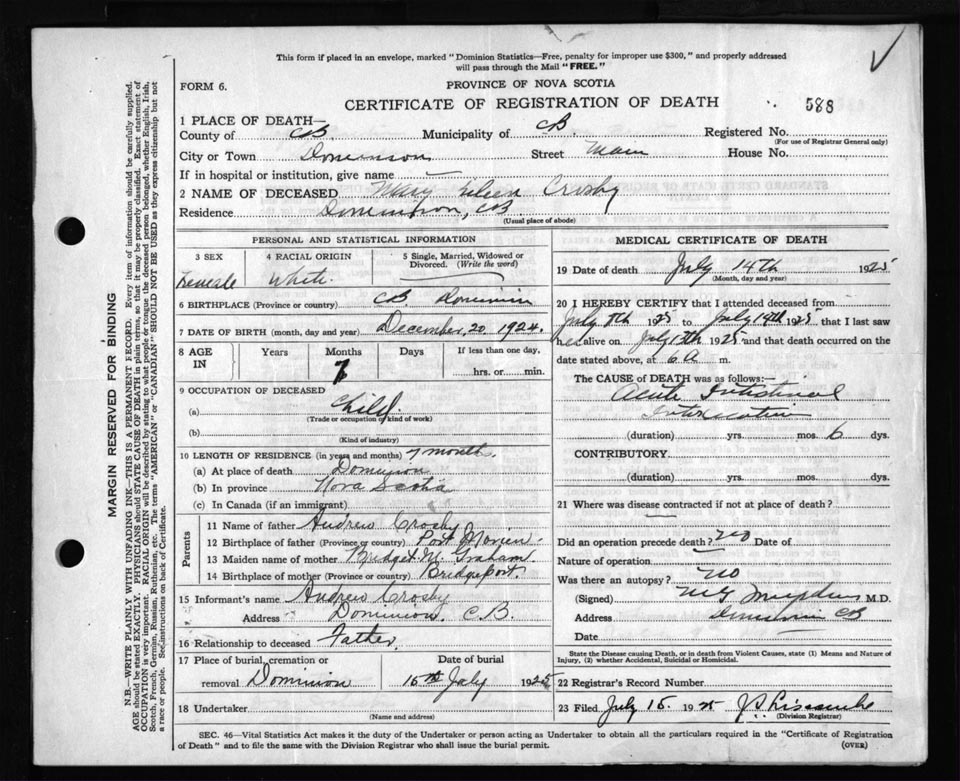 This form if placed in an envelope, marked "Dominion Statistics—Free, penalty for improper use $300," and properly addressed
will pass through the Mail "FREE."
FORM 6.
PROVINCE OF NOVA SCOTIA
CERTIFICATE OF REGISTRATION OF DEATH
588
1 PLACE OF DEATH—
County of CB Municipality of CB. Registered No.
(For use of Registrar General only)
City or Town Dominion Street Main House No.
If in hospital or institution, give name —
2 NAME OF DECEASED Mary Crosby
Residence Dominion, CB.
(Usual place of abode)
PERSONAL AND STATISTICAL INFORMATION
3 SEX
Female
4 RACIAL ORIGIN
White.
5 Single, Married, Widowed or
Divorced. (Write the word)
6 BIRTHPLACE (Province or country) CB Dominion
7 DATE OF BIRTH (month, day and year) December, 20 1924.
8 AGE
IN
Years
Months
7
Days
If less than one day,
hrs. or min.
9 OCCUPATION OF DECEASED
(a) Child.
(Trade or occupation or kind of work)
(b)
(Kind of industry)
10 LENGTH OF RESIDENCE (in years and months) 7 month.
(a) At place of death Dominion
(b) In province Nova Scotia
(c) In Canada (if an immigrant)
Parents
11 Name of father Andrew Crosby
12 Birthplace of father (Province or country) Port Morien.
13 Maiden name of mother Bridget M. Graham
14 Birthplace of mother (Province or country) Bridgeport.
15 Informant's name Andrew Crosby
Address Dominion. C.B.
16 Relationship to deceased Father.
17 Place of burial, cremation or
removal Dominion
Date of burial
15th July 1925
18 Undertaker
(Name and address)
MEDICAL CERTIFICATE OF DEATH
19 Date of death July 14th 1925
(Month, day and year)
20 I HEREBY CERTIFY that I attended deceased from
July 8th 1925 to July 14th 1925, that I last saw
alive on July 13th 1925 and that death occurred on the
date stated above, at 6 A m.
The CAUSE OF DEATH was as follows:—
Acute Intestinal
Intoxication
(duration) yrs. mos. 6 dys.
CONTRIBUTORY
(duration) yrs. mos. dys.
21 Where was disease contracted if not at place of death?
Did an operation precede death? NO Date of
Nature of operation
Was there an autopsy? NO
(Signed) M.D.
Address Dominion CB
Date
State the Disease causing Death, or in death from Violent Causes, state (1) Means and Nature of
Injury, (2) whether Accidental, Suicidal or Homicidal.
22 Registrar's Record Number
23 Filed July 15. 1925
(Division Registrar)
SEC. 46—Vital Statistics Act makes it the duty of the Undertaker or person acting as Undertaker to obtain all the particulars required in the "Certificate of Registration
of Death" and to file the same with the Division Registrar who shall issue the burial permit.
(OVER)
MARGIN RESERVED FOR BINDING
N.B.—WRITE PLAINLY WITH UNFADING INK—THIS IS A PERMANENT RECORD. Every item of information should be carefully supplied.
AGE should be stated EXACTLY. PHYSICIANS should STATE CAUSE OF DEATH in plain terms, so that it may be properly classified. Exact statement of
OCCUPATION is very important. RACIAL ORIGIN will be described by stating to what people or tongue the deceased person belonged, whether English, Irish,
Scotch, French, German, Russian, Ruthenian, etc. The terms "AMERICAN" or "CANADIAN" SHOULD NOT BE USED as they express citizenship but not
a race or people. See instructions on back of Certificate.